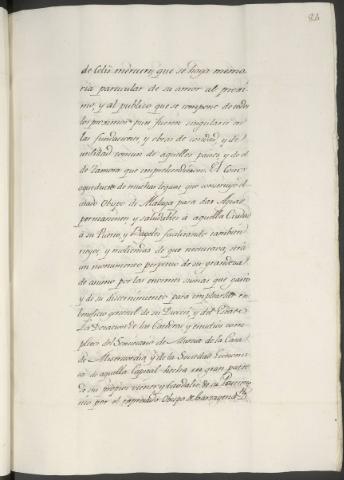 86
de Celis merecen que se haga memo-
ria particular de su amor al proxi-
mo, y al publico que se compone de todos
los proximos pues fueron singulares en
las fundaciones, y obras de caridad y de
utilidad comun de aquellos países y de el
de Zamora que comprehendieron. El Gran
aqueducto de muchas leguas que construyó el
citado Obispo de Malaga para dar Aguas
permanentes y saludables à aquella Ciudad
à su Puerto, y Bageles facilitando tambien
riegos, y moliendas de que necesitava, será
un monumento perpetuo de su grandeza
de animo por las enormes sumas que gastó
y de su discernimiento para emplearlas en
beneficio general de su Diocesi, y del Estado
La Dotacion de las Catedras y estudios com-
pletos del Seminario de Murcia de la Casa
de Misericordia, y de la Sociedad Economi-
ca de aquella Capital hecha en gran parte
de sus propios vienes y caudales de su
nio por el expresado Obispo de Cartagena